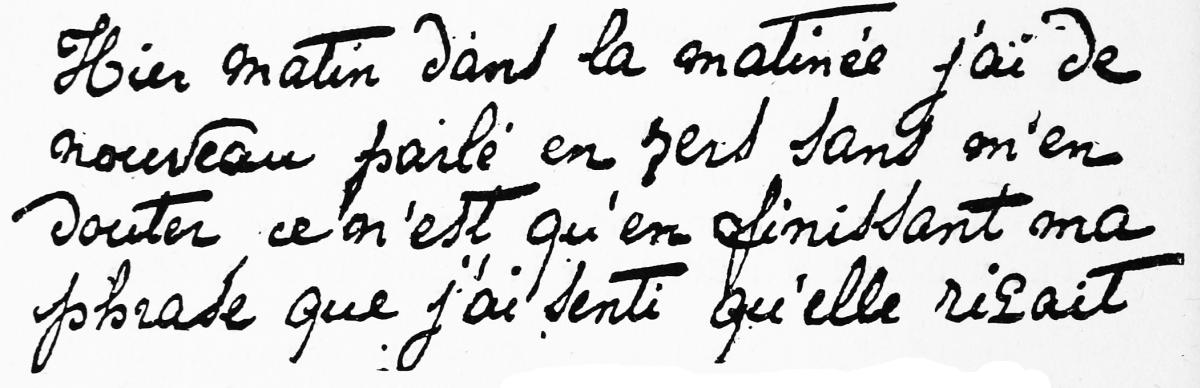 Hier matin dans la matinée j'ai de
nouveau parlé en vers sans m'en
douter ce n'est qu'en finissant ma
phrase que j'ai senti qu'elle rimait